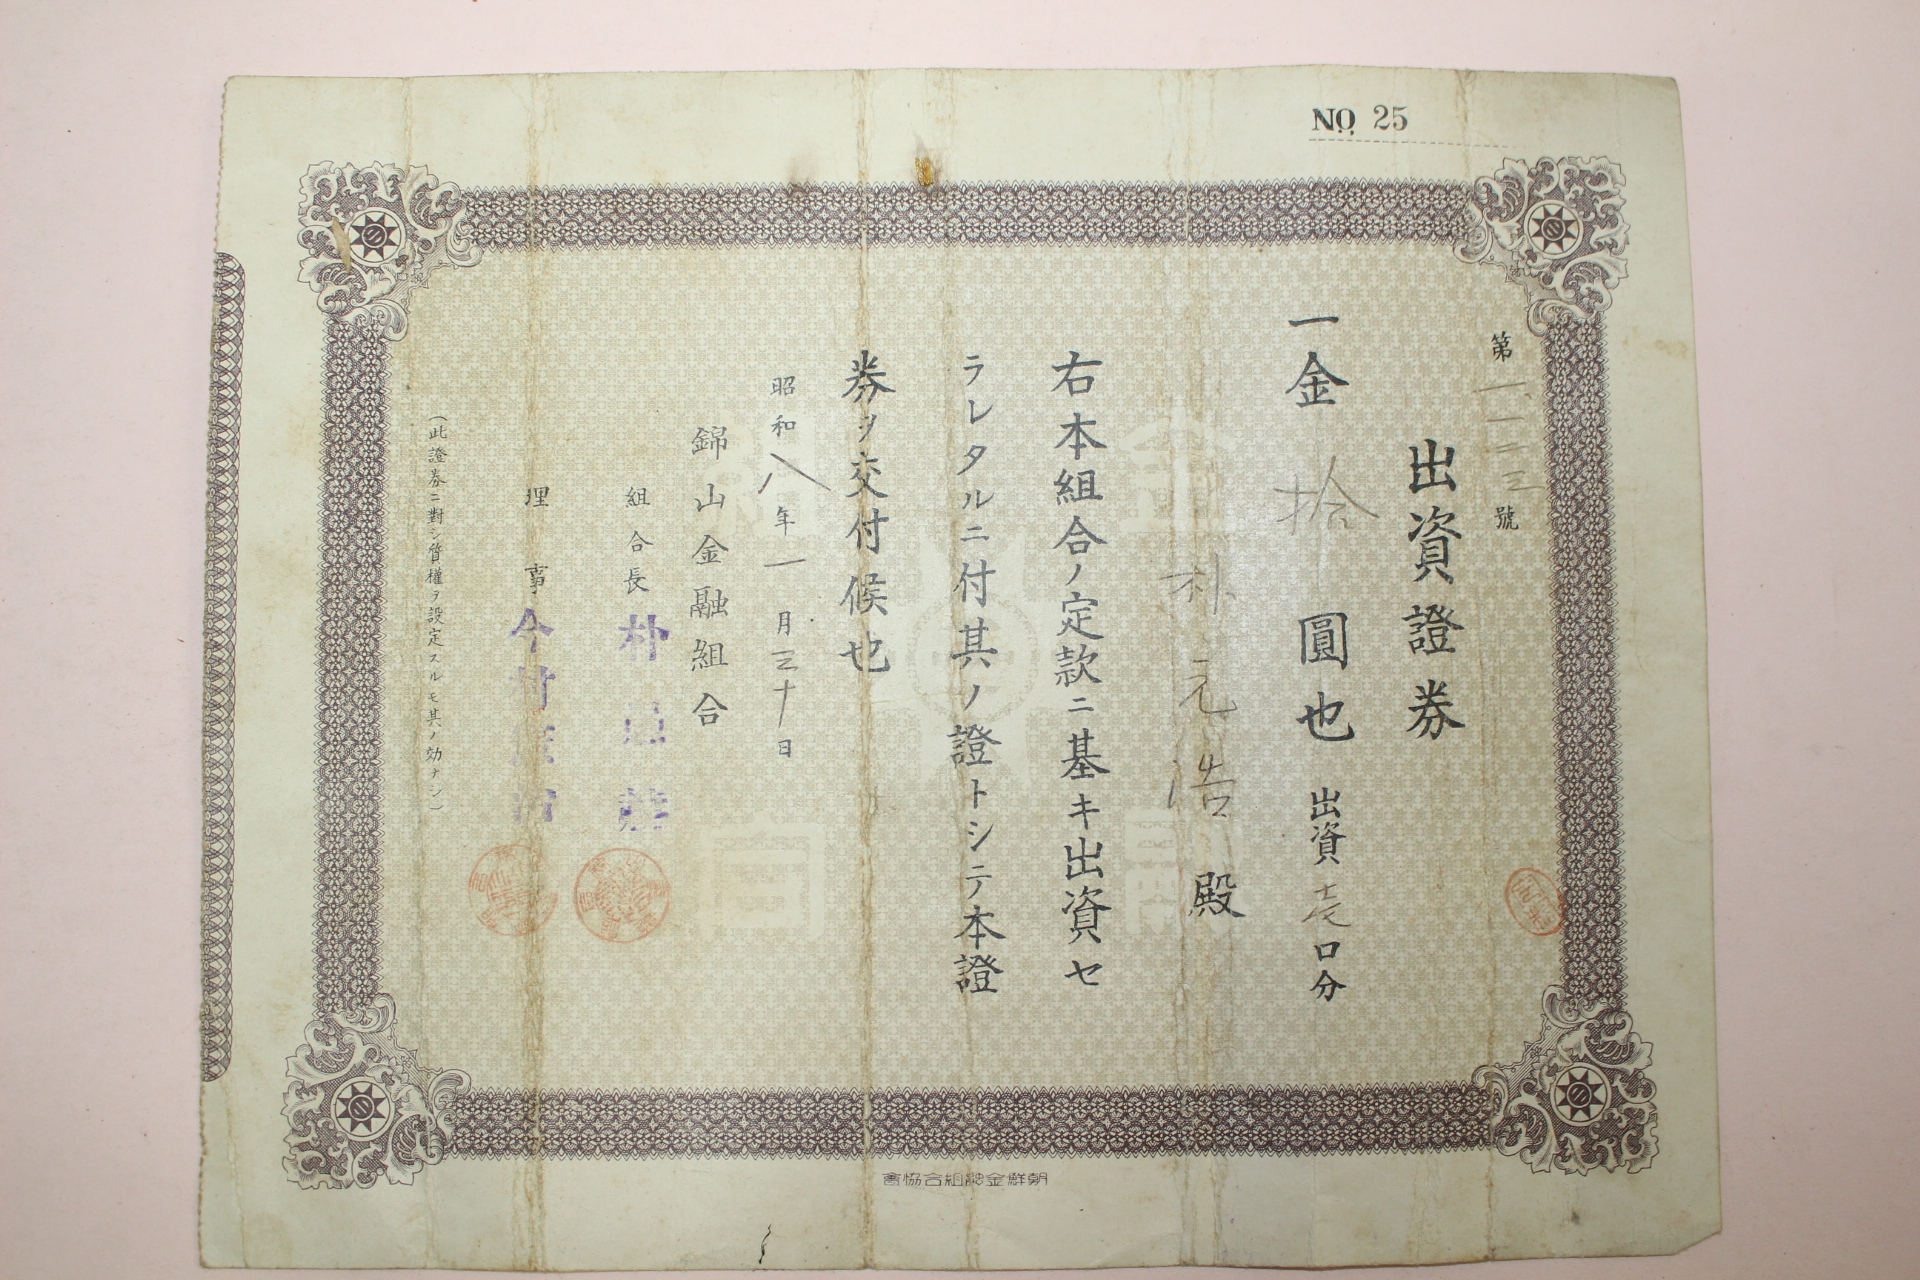 NO. 25
第一一二三號
出資證券
一金拾圓也 出資壱口分
朴元浩殿
右本組合ノ定款ニ基キ出資セ
ラレタルニ付其ノ證トシテ本證
券ヲ交付候也
昭和八年一月三十日
錦山金融組合
組合長 朴
理事 今村
(此證券ニ對シ質權ヲ設定スルモ其ノ効ナシ)
朝鮮金融組合協會